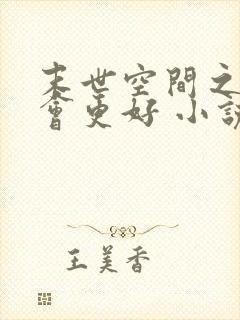 末世空間之
會更好 小說
王美香